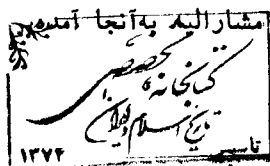 مشارالیه به آنجا آمده
کتابخانه تخصصی
تاریخ اسلام و ایران
تاسیس
۱۳۷۴